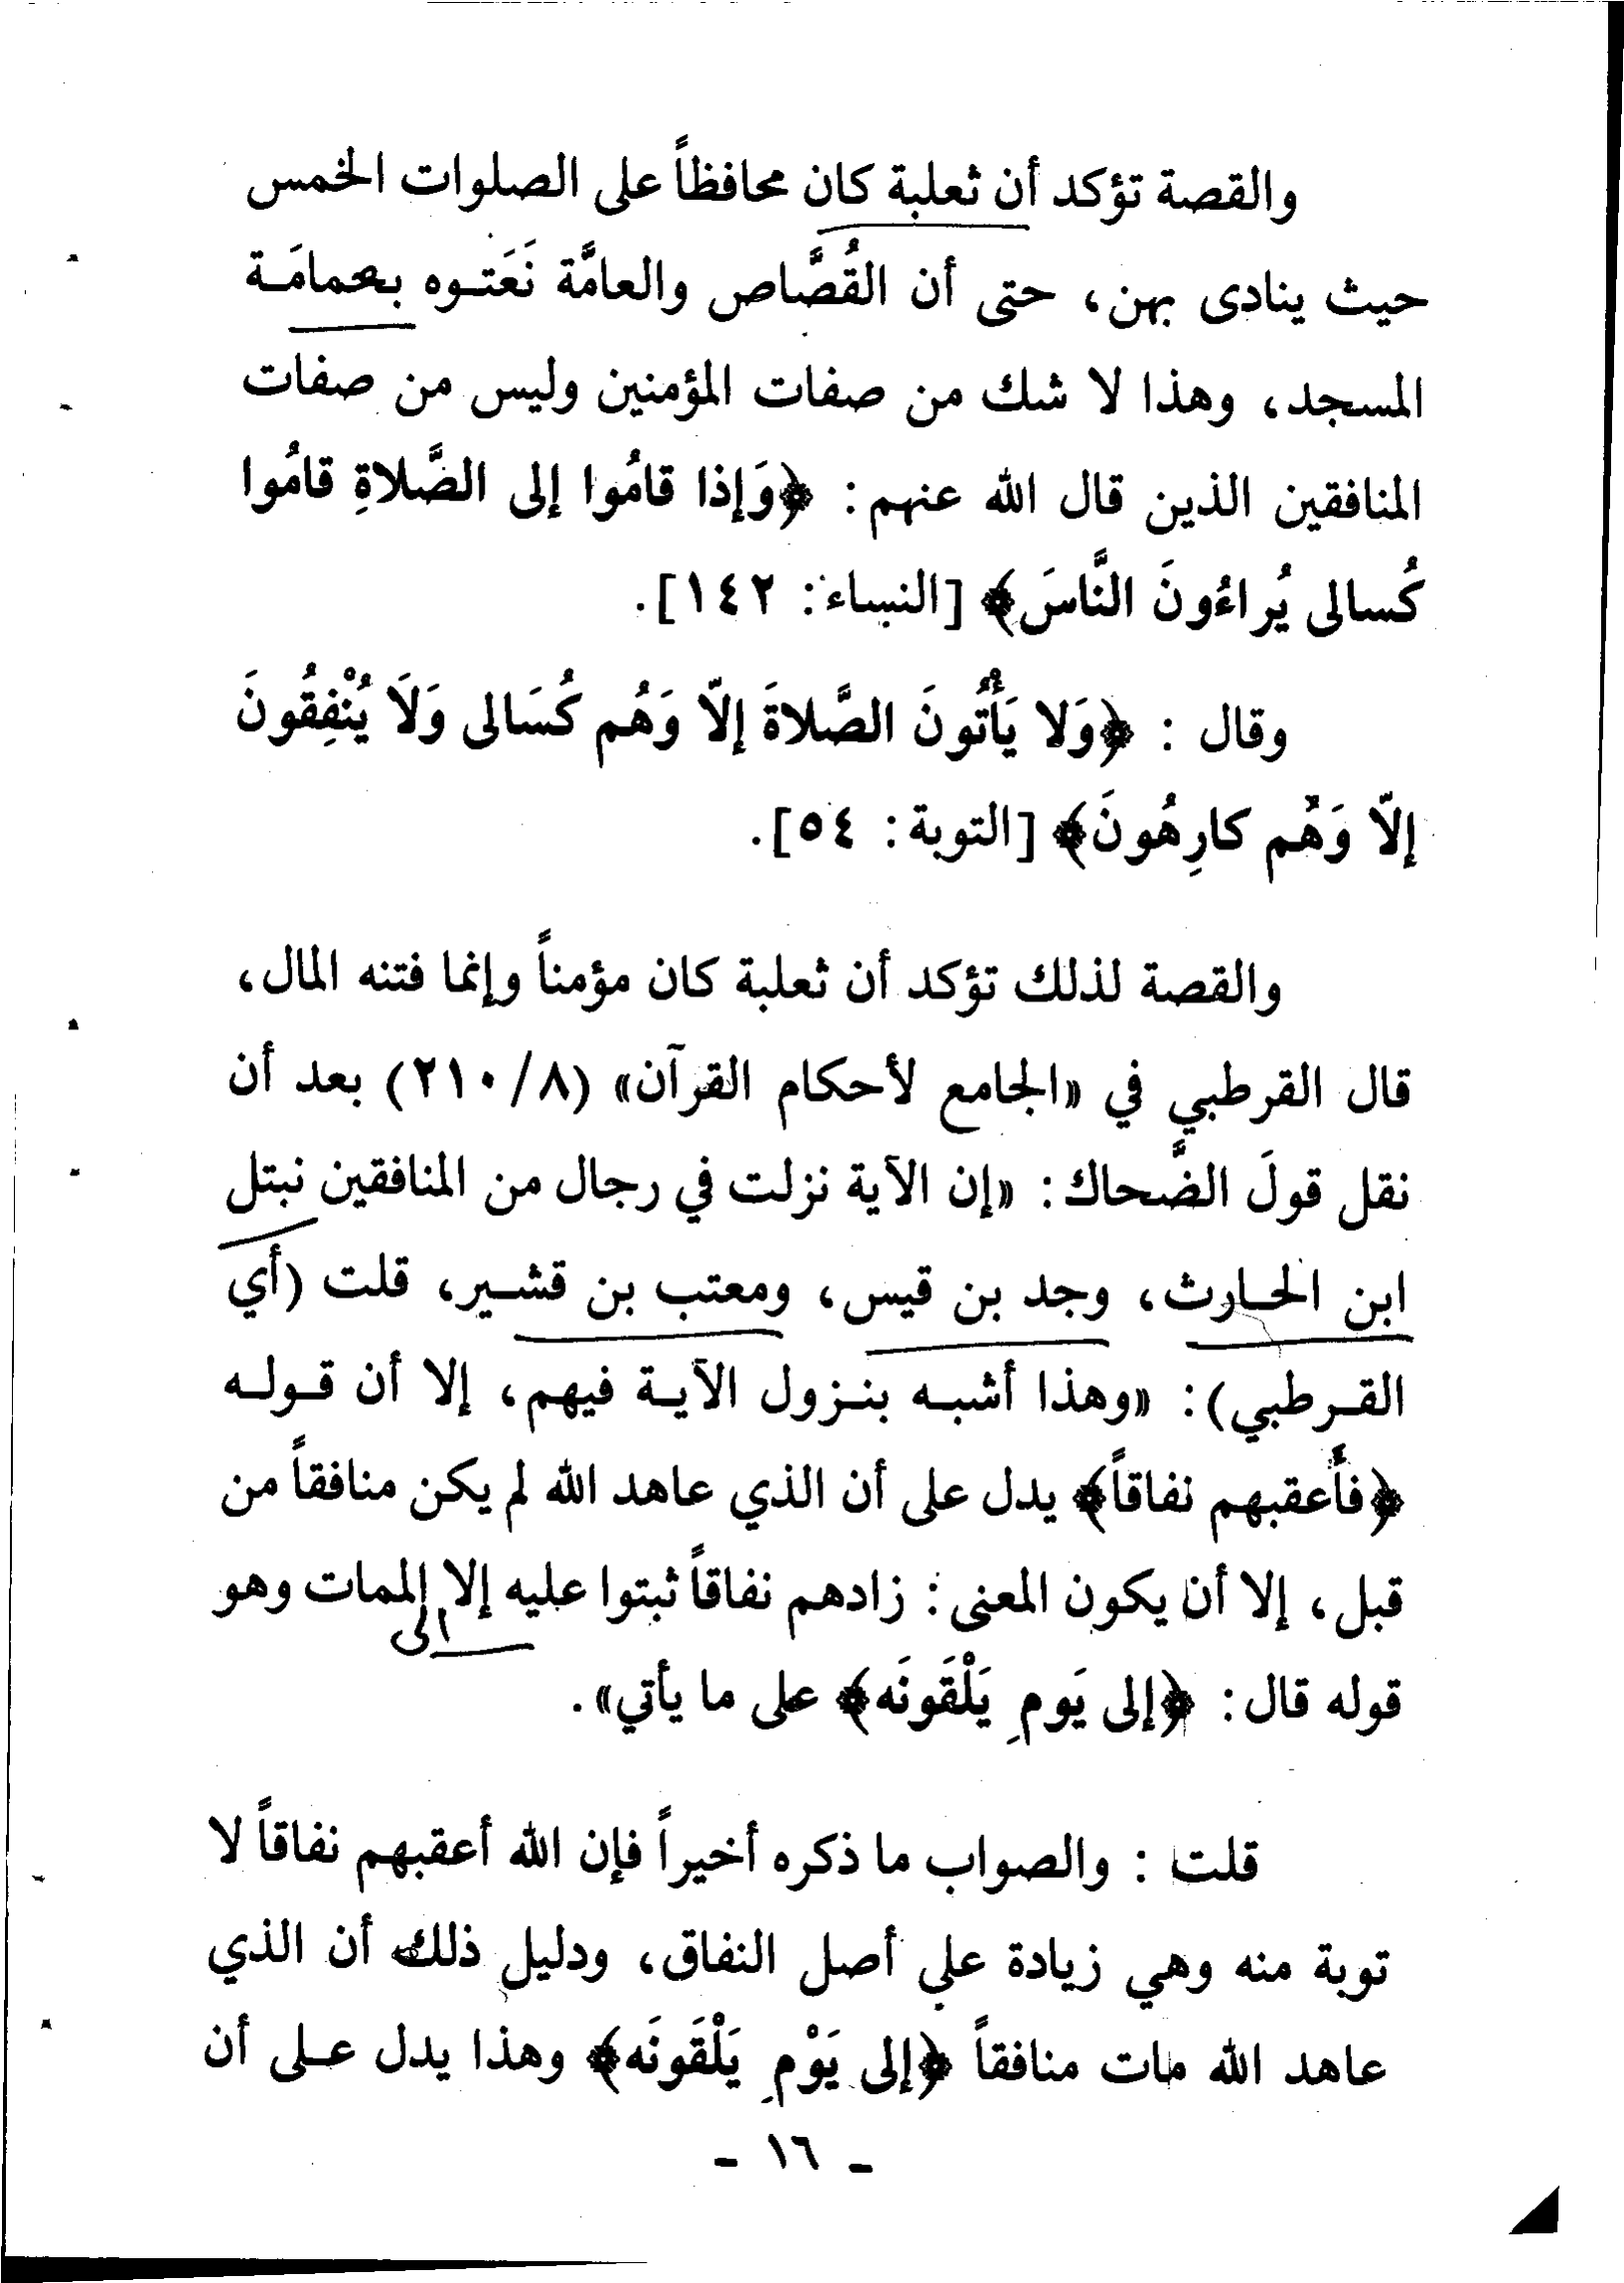 والقصة تؤكد أن ثعلبة كان محافظاً على الصلوات الخمس
حيث ينادى بهن، حتى أن القُصَّاص والعامَّة نَعَتـوه بحمامَـة
المسجد، وهذا لا شك من صفات المؤمنين وليس من صفات
المنافقين الذين قال الله عنهم: ﴿وَإذا قامُوا إلى الصَّلاةِ قامُوا
كُسالى يُراءُونَ النَّاسَ﴾ [النساء: ١٤٢].
وقال : ﴿وَلا يَأْتُونَ الصَّلاةَ إلاّ وَهُم كُسَالى وَلَا يُنْفِقُونَ
إلاّ وَهُم كارِهُونَ﴾ [التوبة: ٥٤].
والقصة لذلك تؤكد أن ثعلبة كان مؤمناً وإنما فتنه المال،
قال القرطبي في «الجامع لأحكام القرآن» (٢١٠/٨) بعد أن
نقل قولَ الضَّحاك: «إن الآية نزلت في رجال من المنافقين نبتل
ابن الحـارث، وجد بن قيس، ومعتب بن قشـير، قلت (أي
القـرطبي): «وهذا أشبـه بنـزول الآيـة فيهم، إلا أن قـولـه
﴿فأَعقبهم نفاقاً﴾ يدل على أن الذي عاهد الله لم يكن منافقاً من
قبل، إلا أن يكون المعنى: زادهم نفاقاً ثبتوا عليه إلا الممات وهو
إلى
قوله قال: ﴿إلى يَومِ يَلْقَونَه﴾ على ما يأتي».
قلت : والصواب ما ذكره أخيراً فإن الله أعقبهم نفاقاً لا
توبة منه وهي زيادة على أصل النفاق، ودليل ذلك أن الذي
عاهد الله مات منافقاً ﴿إلى يَوْمِ يَلْقَونَه﴾ وهذا يدل عـلى أن
- ١٦ -